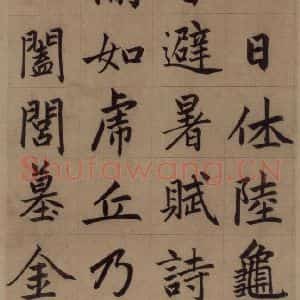 日休陸龜
避暑賦詩
如虎丘乃
闔閭墓金
Shufawang.CN